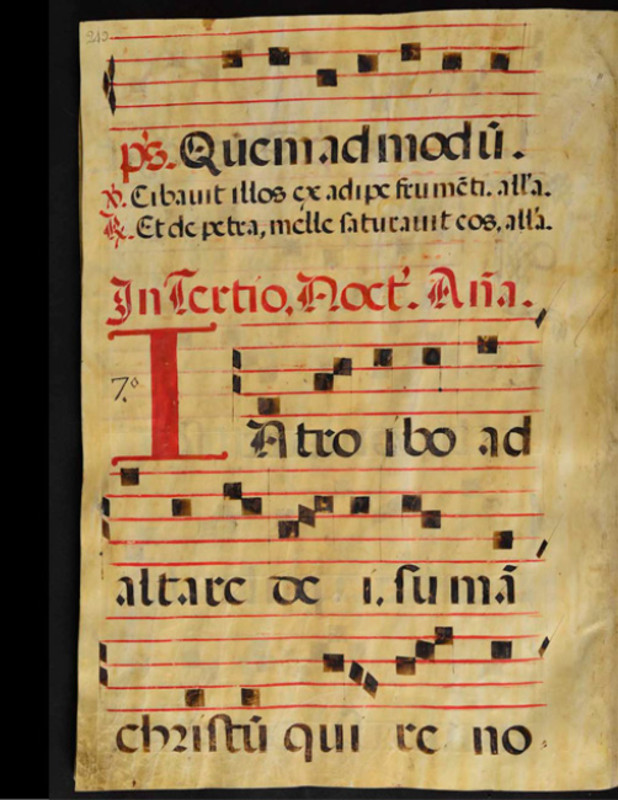 243
ps. Quemadmodū.
℣. Cibavit illos ex adipe frumēti. all'a.
℟. Et de petra, melle saturavit eos, all'a.
In Tertio. Noct'. Aña.
7.º
INtro ibo ad
altare de i. sumā
christū qui re no